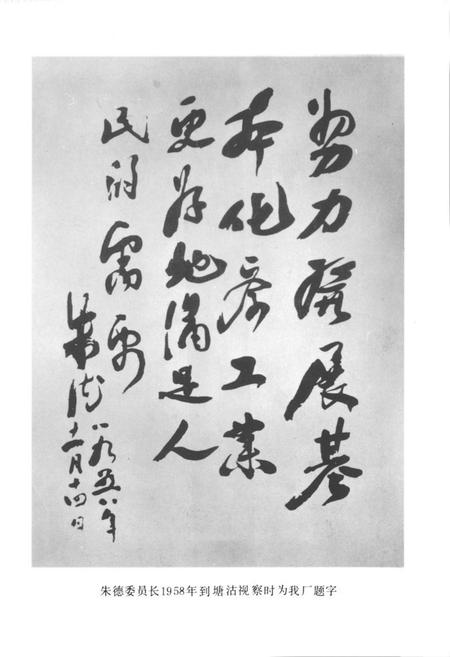 努力發展基
本化学工业
更好地满足人
民的需要
朱德
一九五八年
十一月十四日
朱德委员长1958年到塘沽视察时为我厂题字